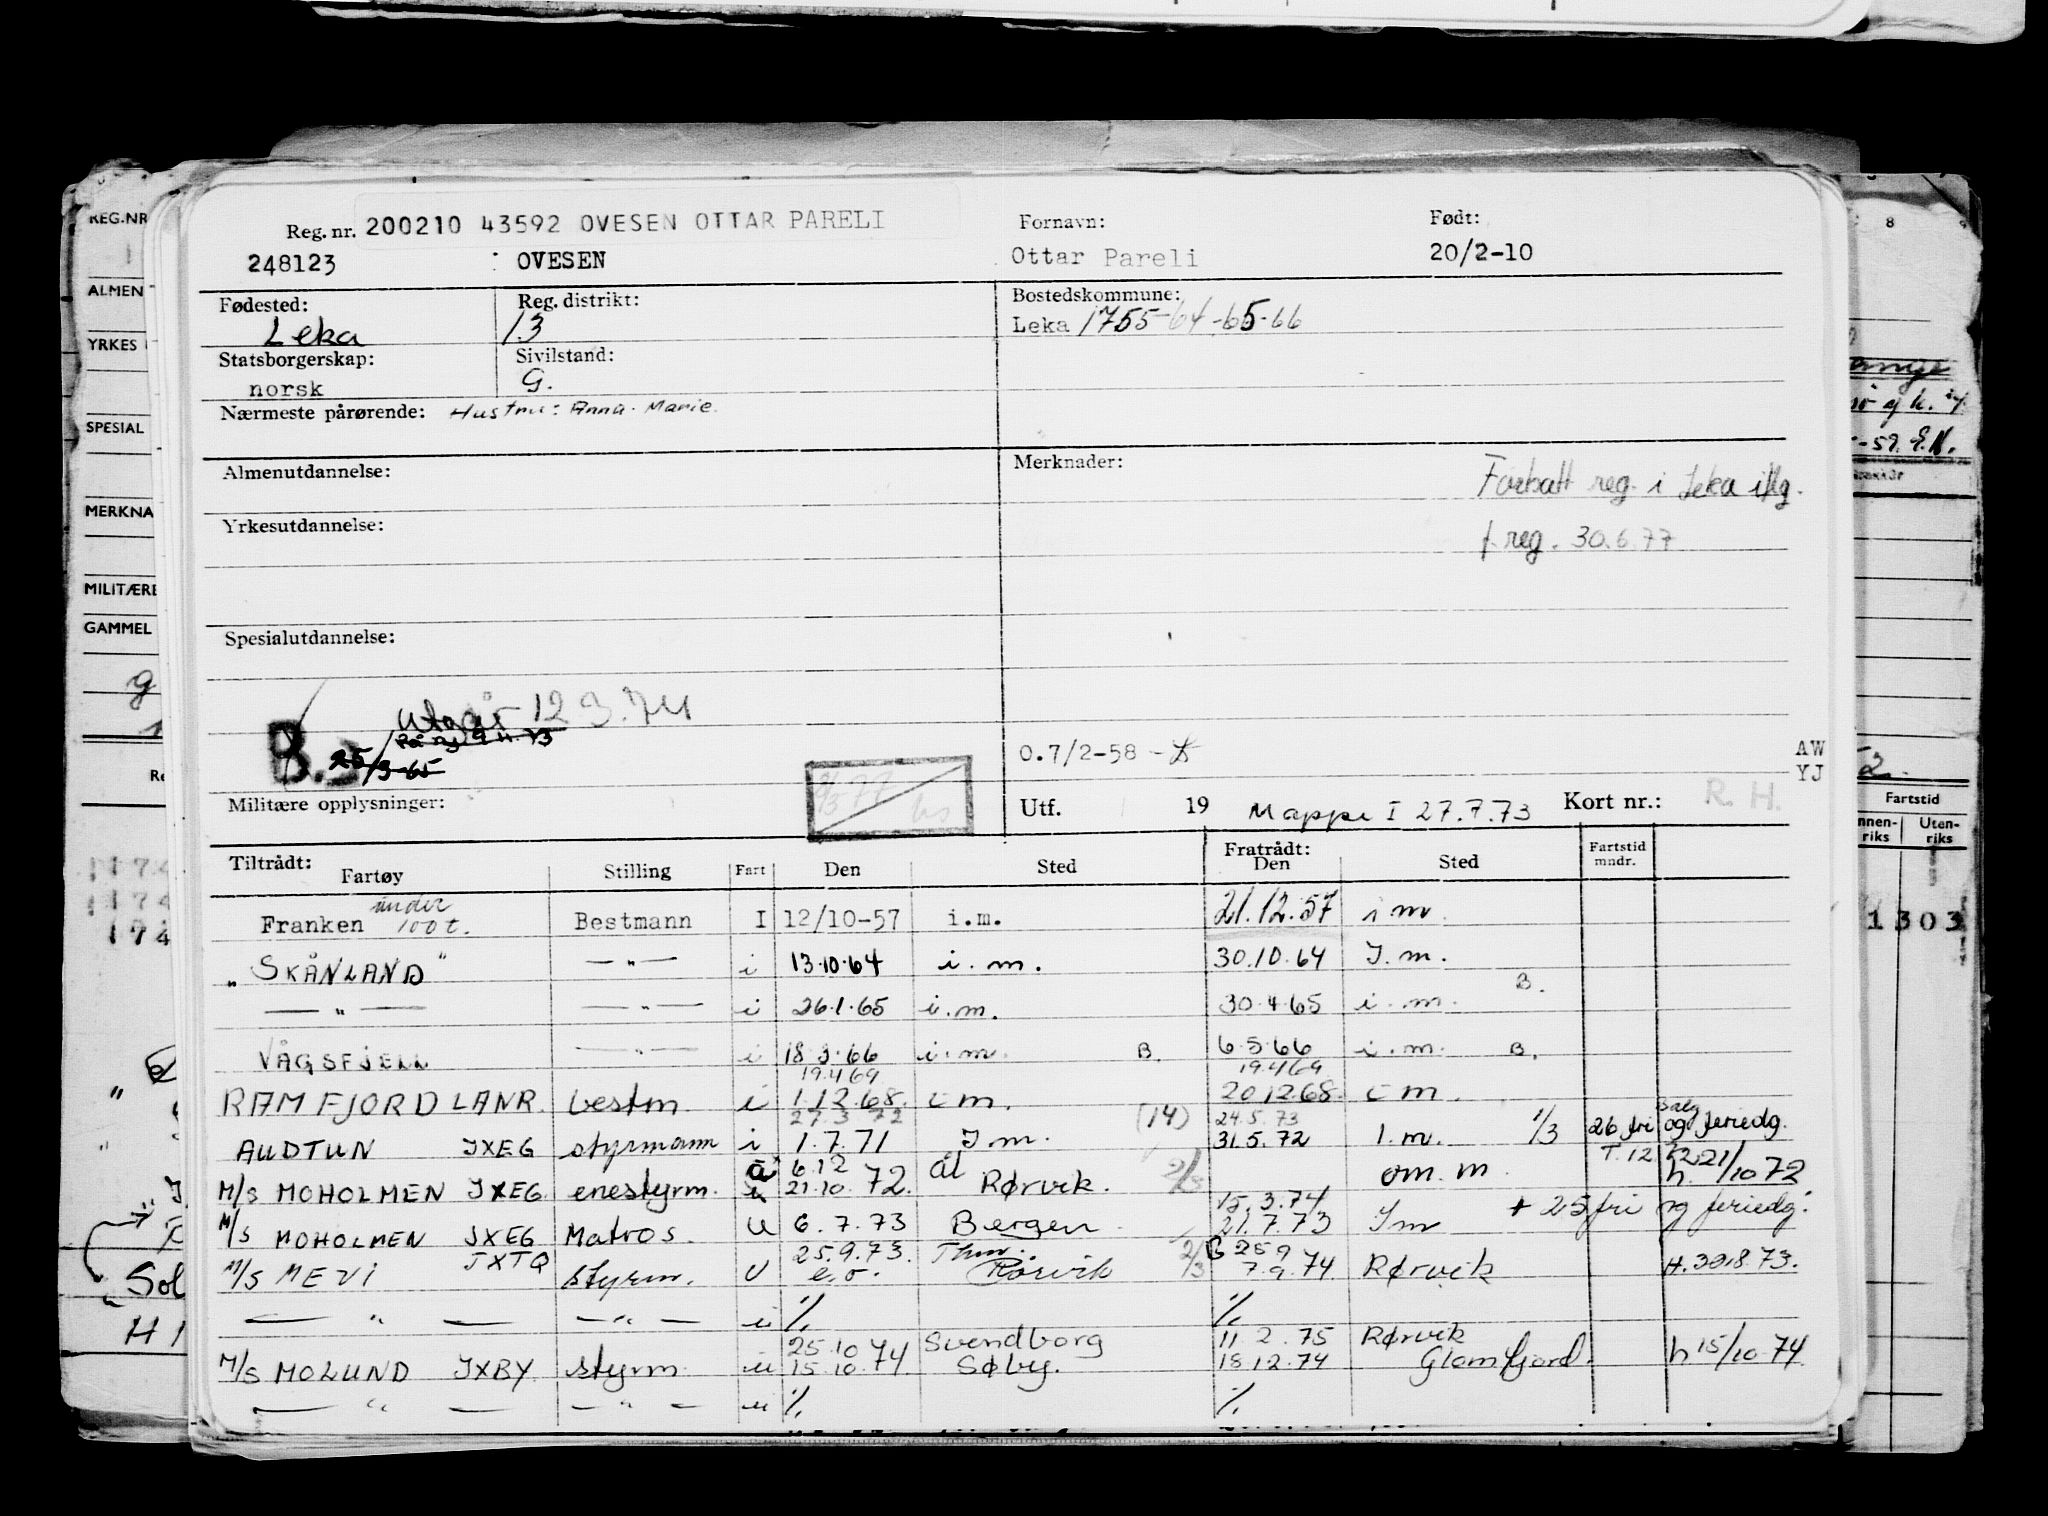 Reg. nr. 200210 43592 OVESEN OTTAR PARELI Fornavn: Født:
248123 OVESEN Ottar Pareli 20/2-10
Fødested: Reg. distrikt: Bostedskommune:
Leka 13 Leka 1755-64-65-66
Statsborgerskap: Sivilstand:
norsk G.
Nærmeste pårørende: Hustru: Anna-Marie.
Almenutdannelse: Merknader: Forbatt reg. i Leka
Yrkesutdannelse: f. reg. 30.6.77
Spesialutdannelse:
Utgår 12 9.74
B. 25/3-65
0.7/2-58
AW
YJ
Militære opplysninger: Utf. 19 Mappe I 27.7.73 Kort nr.: R. H.
Tiltrådt: Fartøy Stilling Fart Den Sted Fratrådt: Den Sted Fartstid mndr.
Franken under 100 t. Bestmann I 12/10-57 i.m. 21.12.57 i m.
"SKÅNLAND" —"— i 13.10.64 i.m. 30.10.64 I.m.
—"— —"— i 26.1.65 i.m. 30.4.65 i.m. B.
VÅGSFJELL —"— i 18.3.66 i.m. B. 6.5.66 i.m. B.
19.4 69 19.4 69
RAMFJORD LANR. bestm. i 1.12.68. i m. 20.12.68. i m.
27.3 72 (14) 24.5.73
AUDTUN JXEG styrmann i 1.7.71 I m. 31.5.72 I.m. 1/3 26 fri og feriedg.
6.12
M/S MOHOLMEN JXEG enestyrm. 21.10.72. Ål Rørvik. om. m. h. 21/10 72
15.3.74
M/S MOHOLMEN JXEG Matros. U 6.7.73 Bergen. 21.7.73 Im + 25 fri og feriedg.
25.9.73. 25 9
M/S MEVI JXTQ styrm. U e.o. Rørvik 2/3 7.9.74 Rørvik H. 30.8.73.
—"— —"— u %. %.
25.10 Svendborg 11 2.75 Rørvik
M/S MOLUND JXBY. styrm. u 15.10.74 Søby. 18.12.74 Glomfjord. h 15/10 74
—"— —"— u %. %.
REG.NR
ALMEN
YRKES
SPESIAL
MERKNA
MILITÆRE
GAMMEL
Sol
8
-59. E.N.
Fartstid
nnen-riks Uten-riks
1303